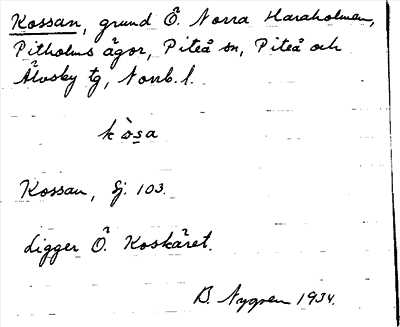 Kossan, grund Ö. Norra Haraholmen,
Pitholms ägor, Piteå sn, Piteå och
Älvsby tg, Norrb. l.
kòsa
Kossan, Sj. 103.
Ligger Ö. Koskäret.
B. Nygren 1934.